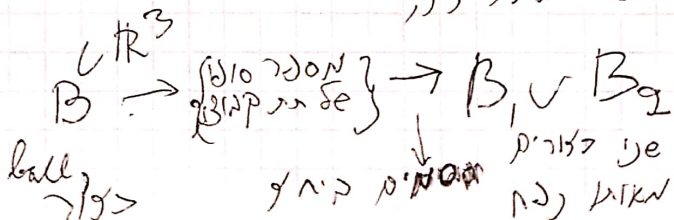 B ⊂ ℝ³ → {מספר סופי של תת קבוצות} → B₁ ∪ B₂
ball כדור
ביחד
שני כדורים
מאותו נפח